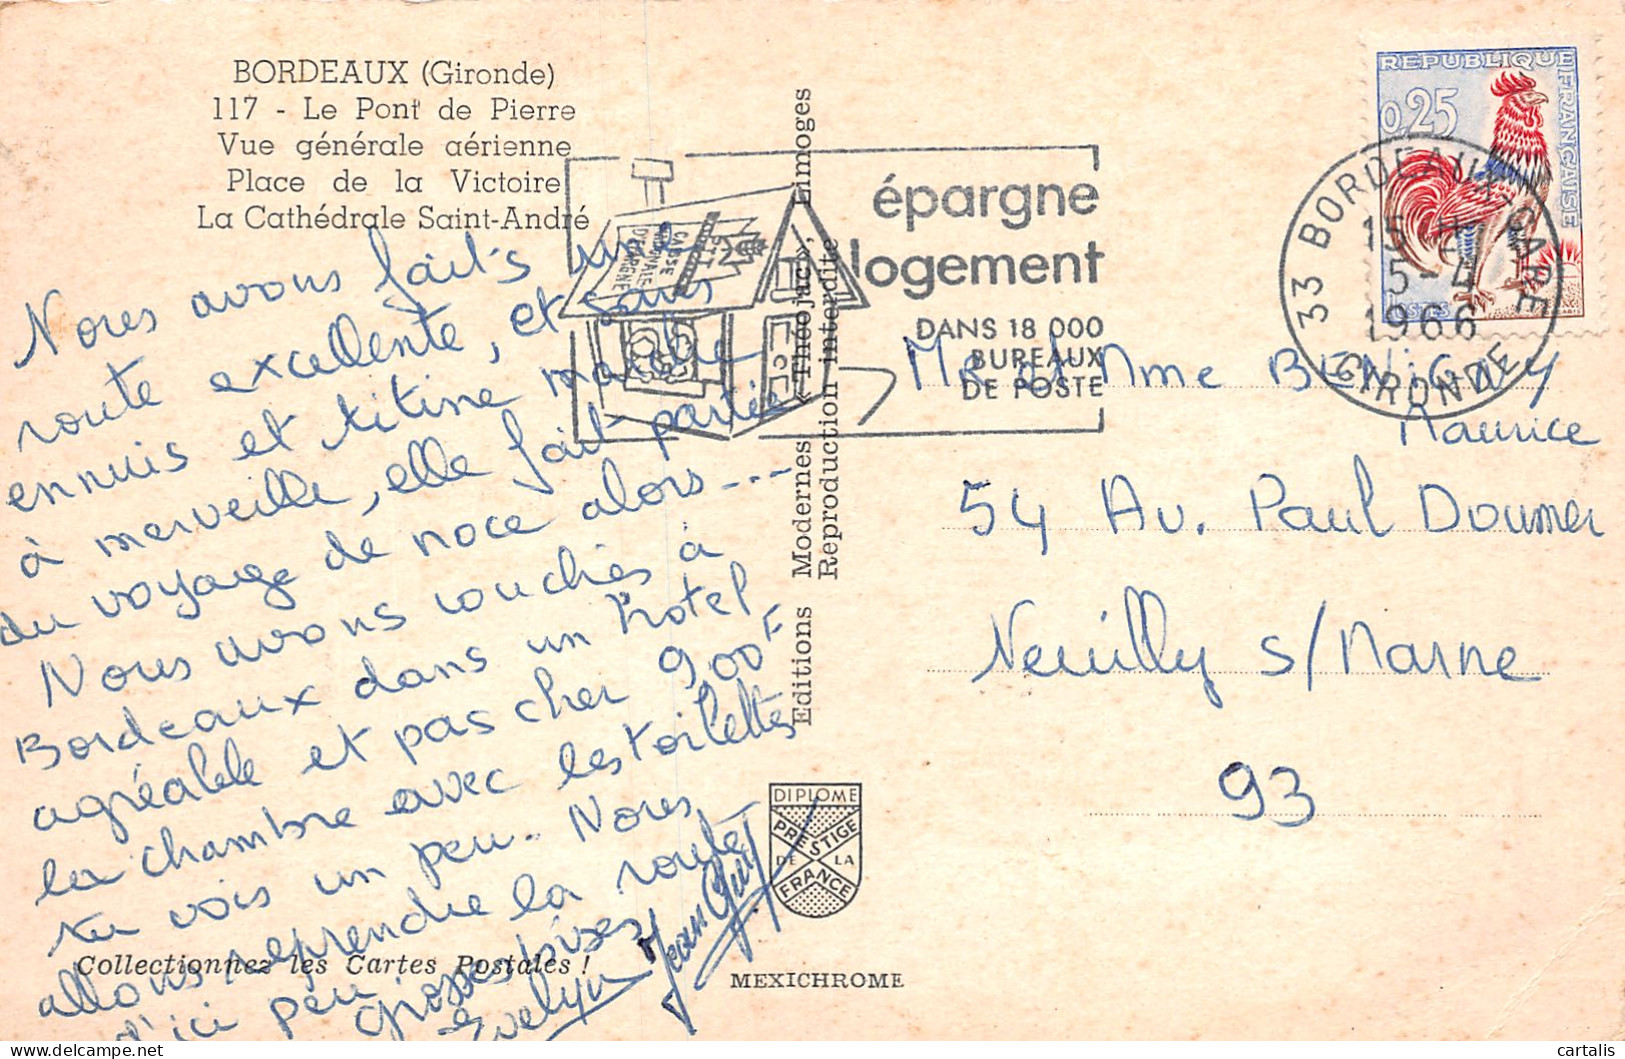 BORDEAUX (Gironde)
117 - Le Pont de Pierre
Vue générale aérienne
Place de la Victoire
La Cathédrale Saint-André
Nous avons fait une
route excellente, et sans
ennuis et titine marche
à merveille, elle fait partie
du voyage de noce alors ---
Nous avons couchés à
Bordeaux dans un hôtel
agréable et pas cher 900F
la chambre avec les toilettes
tu vois un peu. Nous
allons reprendre la route
d'ici peu.
Grosses bises
Evelyne Jean Guy
Collectionnez les Cartes Postales !
Editions Modernes « Théojac », Limoges
Reproduction interdite
CAISSE NATIONALE D'EPARGNE
PTT
épargne
logement
DANS 18 000
BUREAUX
DE POSTE
REPUBLIQUE FRANÇAISE
0,25
POSTES
33 BORDEAUX-GARE
15 H
5-4
1966
GIRONDE
Mr et Mme BENIGAY
Maurice
54 Av. Paul Doumer
Neuilly s/Marne
93
DIPLOME
PRESTIGE
DE LA
FRANCE
MEXICHROME
cartalis